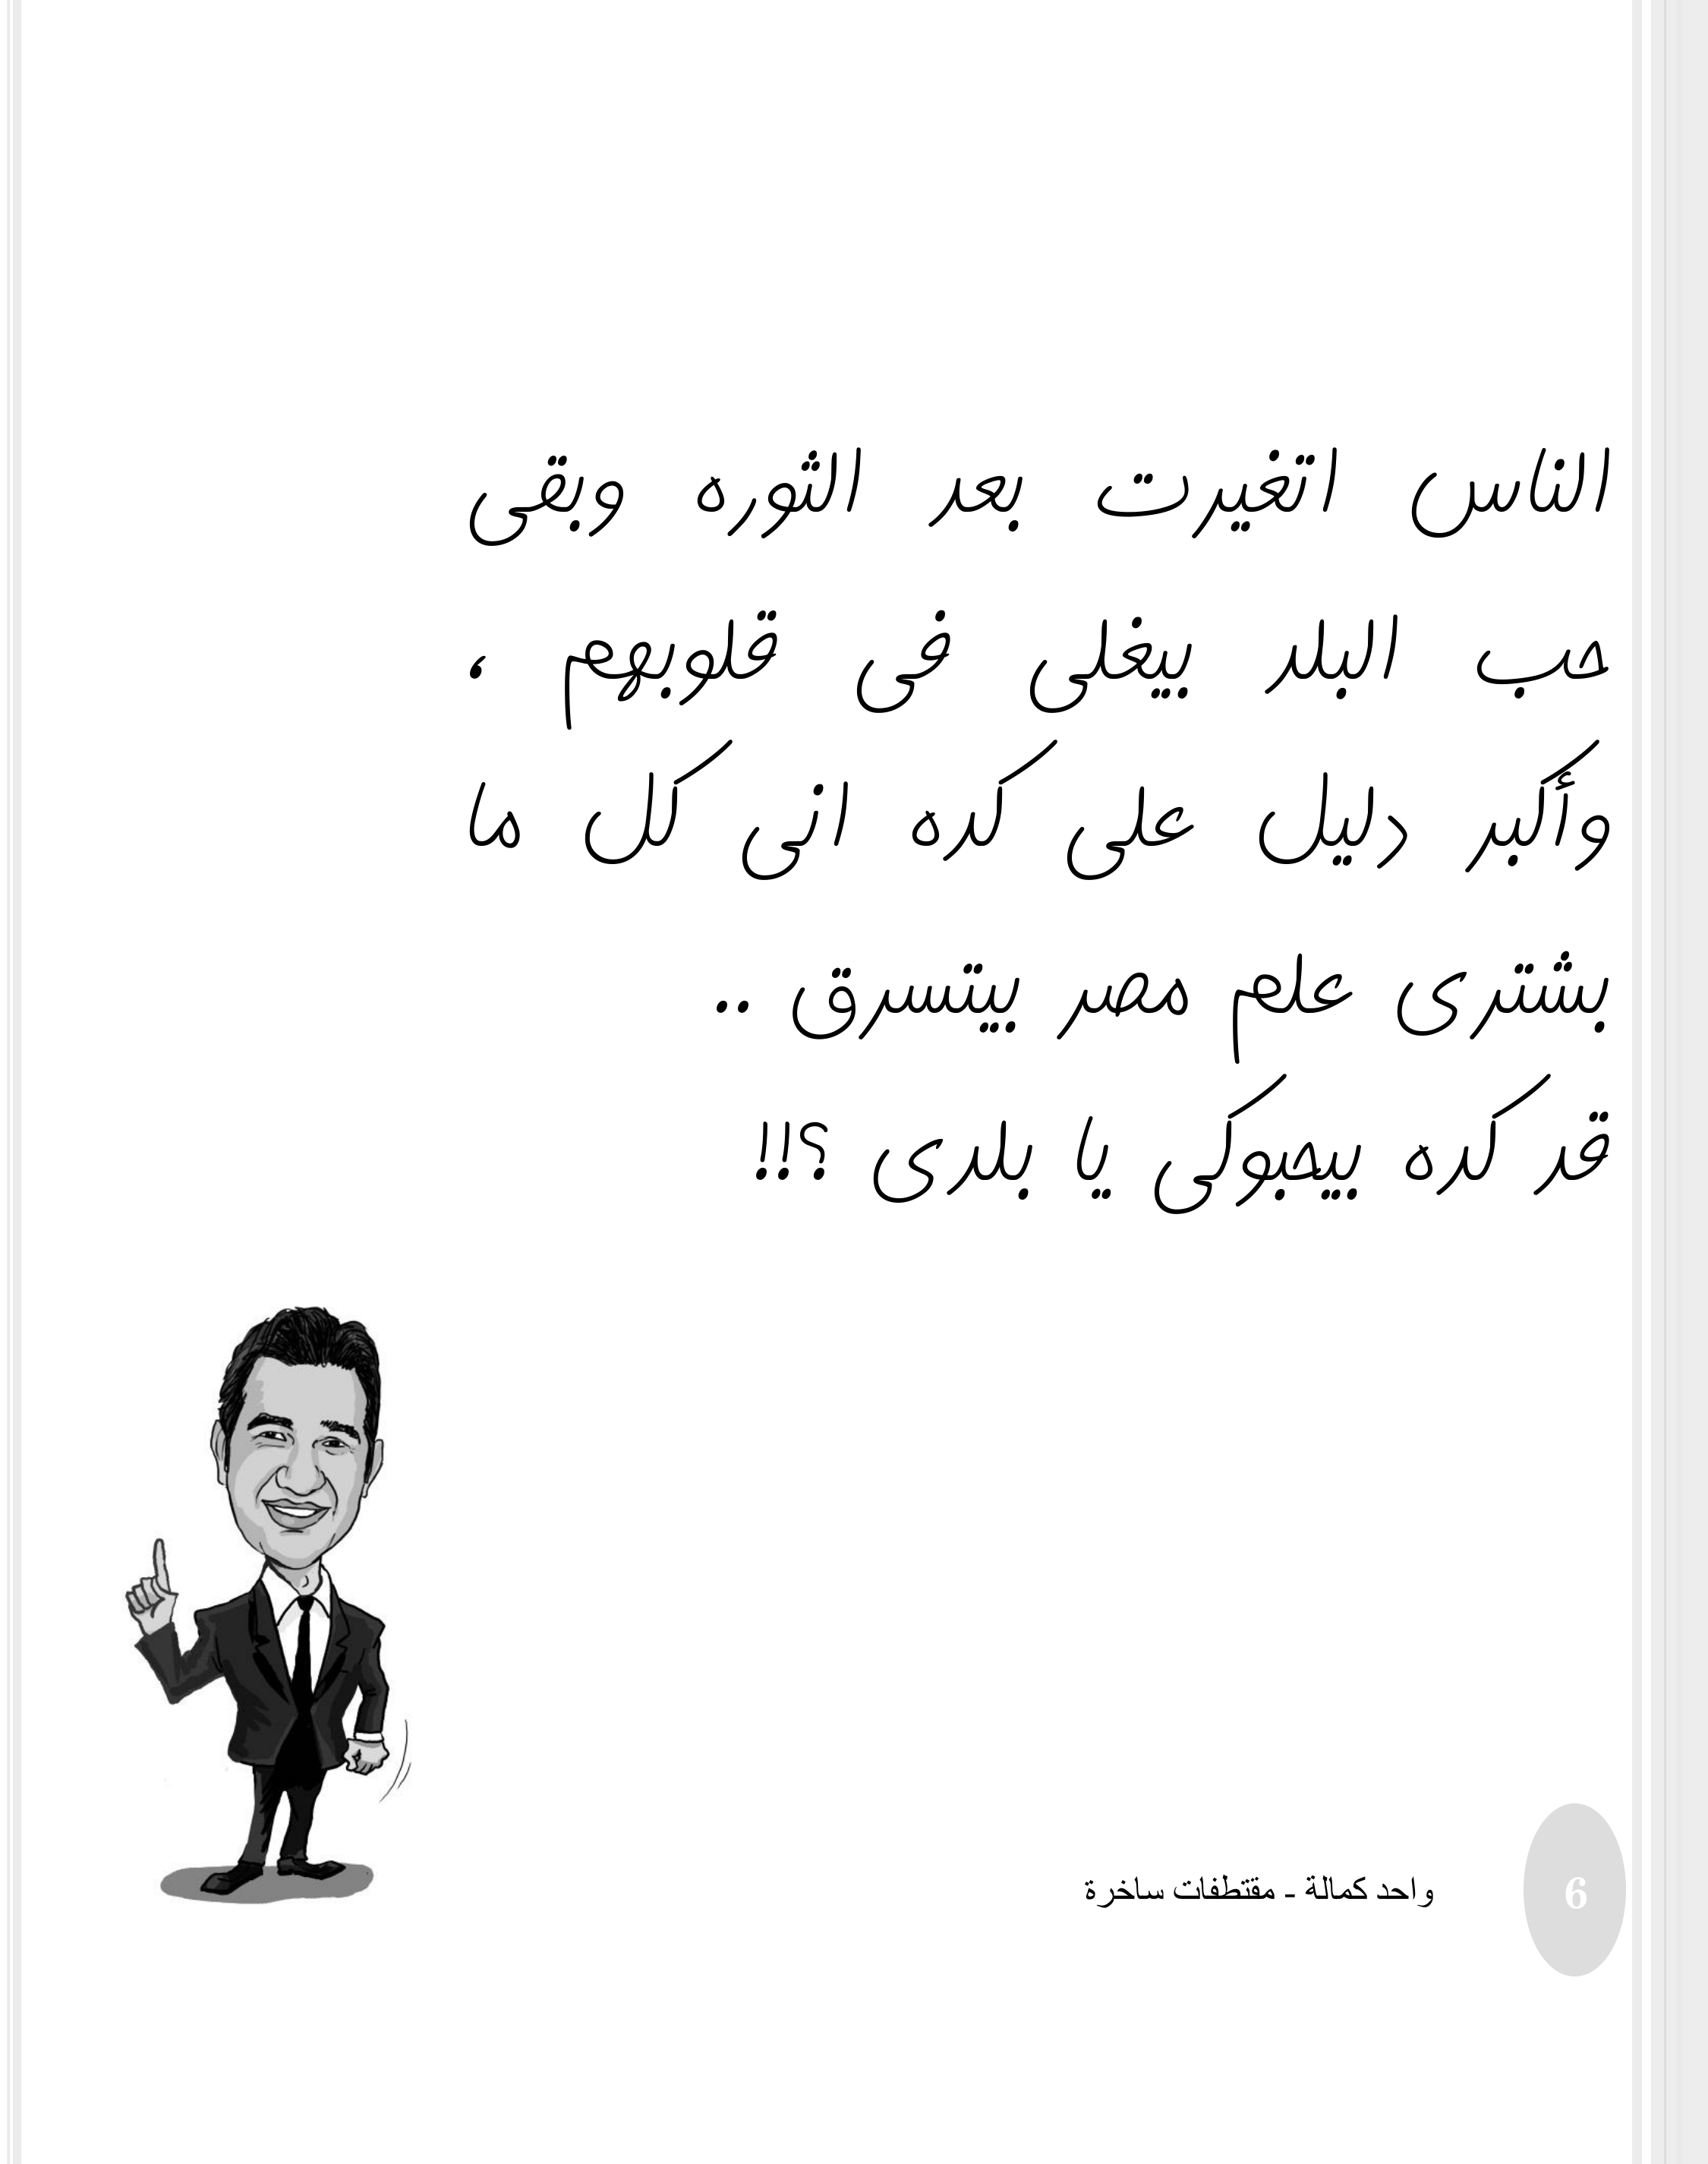 الناس اتغيرت بعد الثوره وبقى
حب البلد بيغلى فى قلوبهم ،
وأكبر دليل على كده انى كل ما
بشترى علم مصر بيتسرق ..
قد كده بيحبوكى يا بلدى ؟!!
واحد كمالة - مقتطفات ساخرة
6